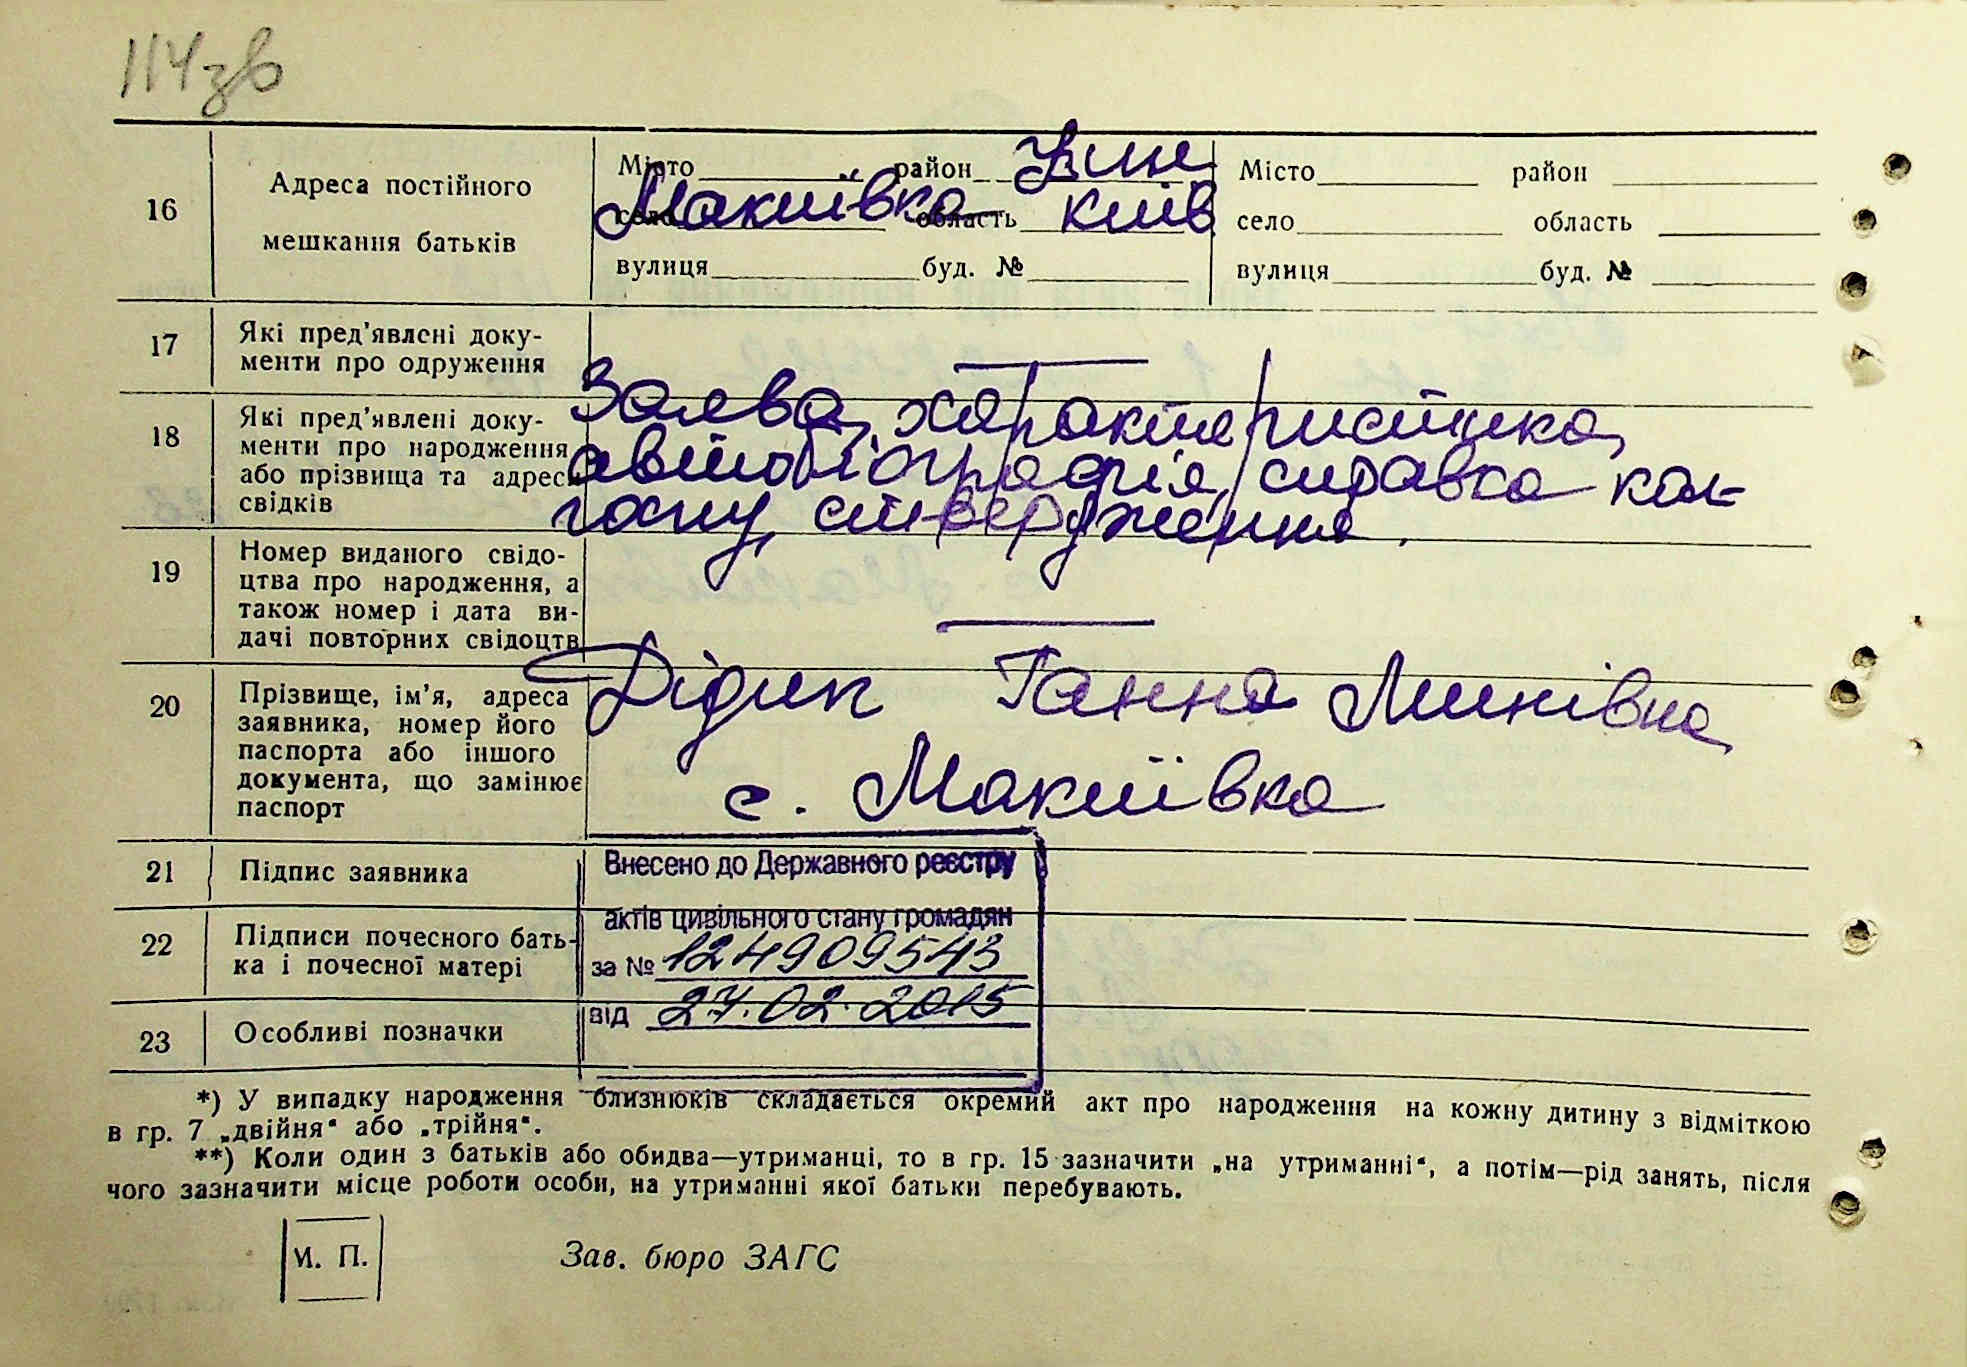 114зв
16 Адреса постійного мешкання батьків
Місто район
Макиївка Київ
село область
вулиця буд. №
Місто район
село область
вулиця буд. №
17 Які пред'явлені доку-
менти про одруження —
18 Які пред'явлені доку-
менти про народження
або прізвища та адреси
свідків
Заява, характеристика,
автобіографія, справка кол-
госпу, ствердження.
19 Номер виданого свідо-
цтва про народження, а
також номер і дата ви-
дачі повторних свідоцтв —
20 Прізвище, ім'я, адреса
заявника, номер його
паспорта або іншого
документа, що замінює
паспорт
Дідик Ганна
с. Макиївка
21 Підпис заявника
22 Підписи почесного бать-
ка і почесної матері
23 Особливі позначки
Внесено до Державного реєстру
актів цивільного стану громадян
за № 124909543
від 27.02.2015
*) У випадку народження близнюків складається окремий акт про народження на кожну дитину з відміткою
в гр. 7 „двійня“ або „трійня“.
**) Коли один з батьків або обидва—утриманці, то в гр. 15 зазначити „на утриманні“, а потім—рід занять, після
чого зазначити місце роботи особи, на утриманні якої батьки перебувають.
М. П.
Зав. бюро ЗАГС